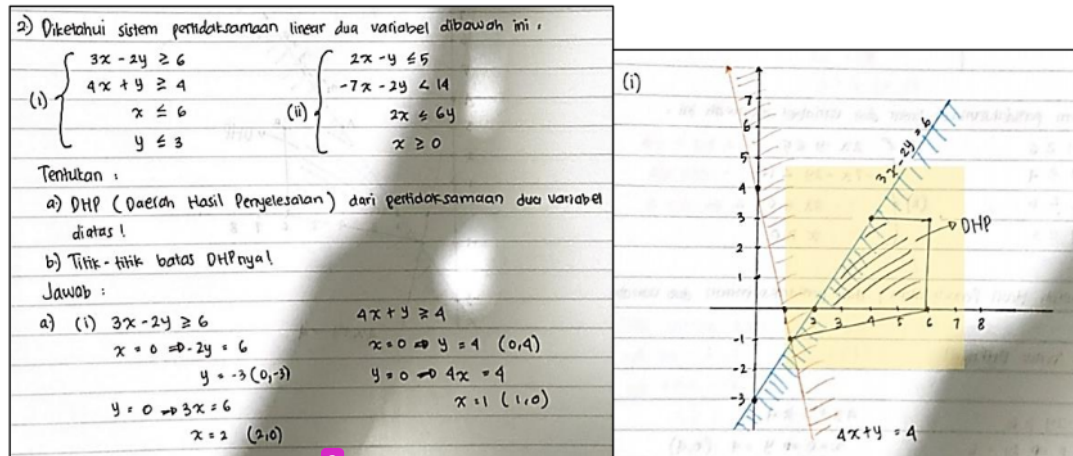 2) Diketahui sistem pertidaksamaan linear dua variabel dibawah ini :
(i) { 3x - 2y ≥ 6
4x + y ≥ 4
x ≤ 6
y ≤ 3
(ii) { 2x - y ≤ 5
-7x - 2y < 14
2x ≤ 6y
x ≥ 0
Tentukan :
a) DHP (Daerah Hasil Penyelesaian) dari pertidaksamaan dua variabel
diatas !
b) Titik-titik batas DHPnya!
Jawab :
a) (i) 3x - 2y ≥ 6
x = 0 ⇒ -2y = 6
y = -3 (0,-3)
y = 0 ⇒ 3x = 6
x = 2 (2,0)
4x + y ≥ 4
x = 0 ⇒ y = 4 (0,4)
y = 0 ⇒ 4x = 4
x = 1 (1,0)
(i)
7
6
5
4
3
2
1
3x - 2y = 6
DHP
1 2 3 4 5 6 7 8
-1
-2
-3
4x + y = 4